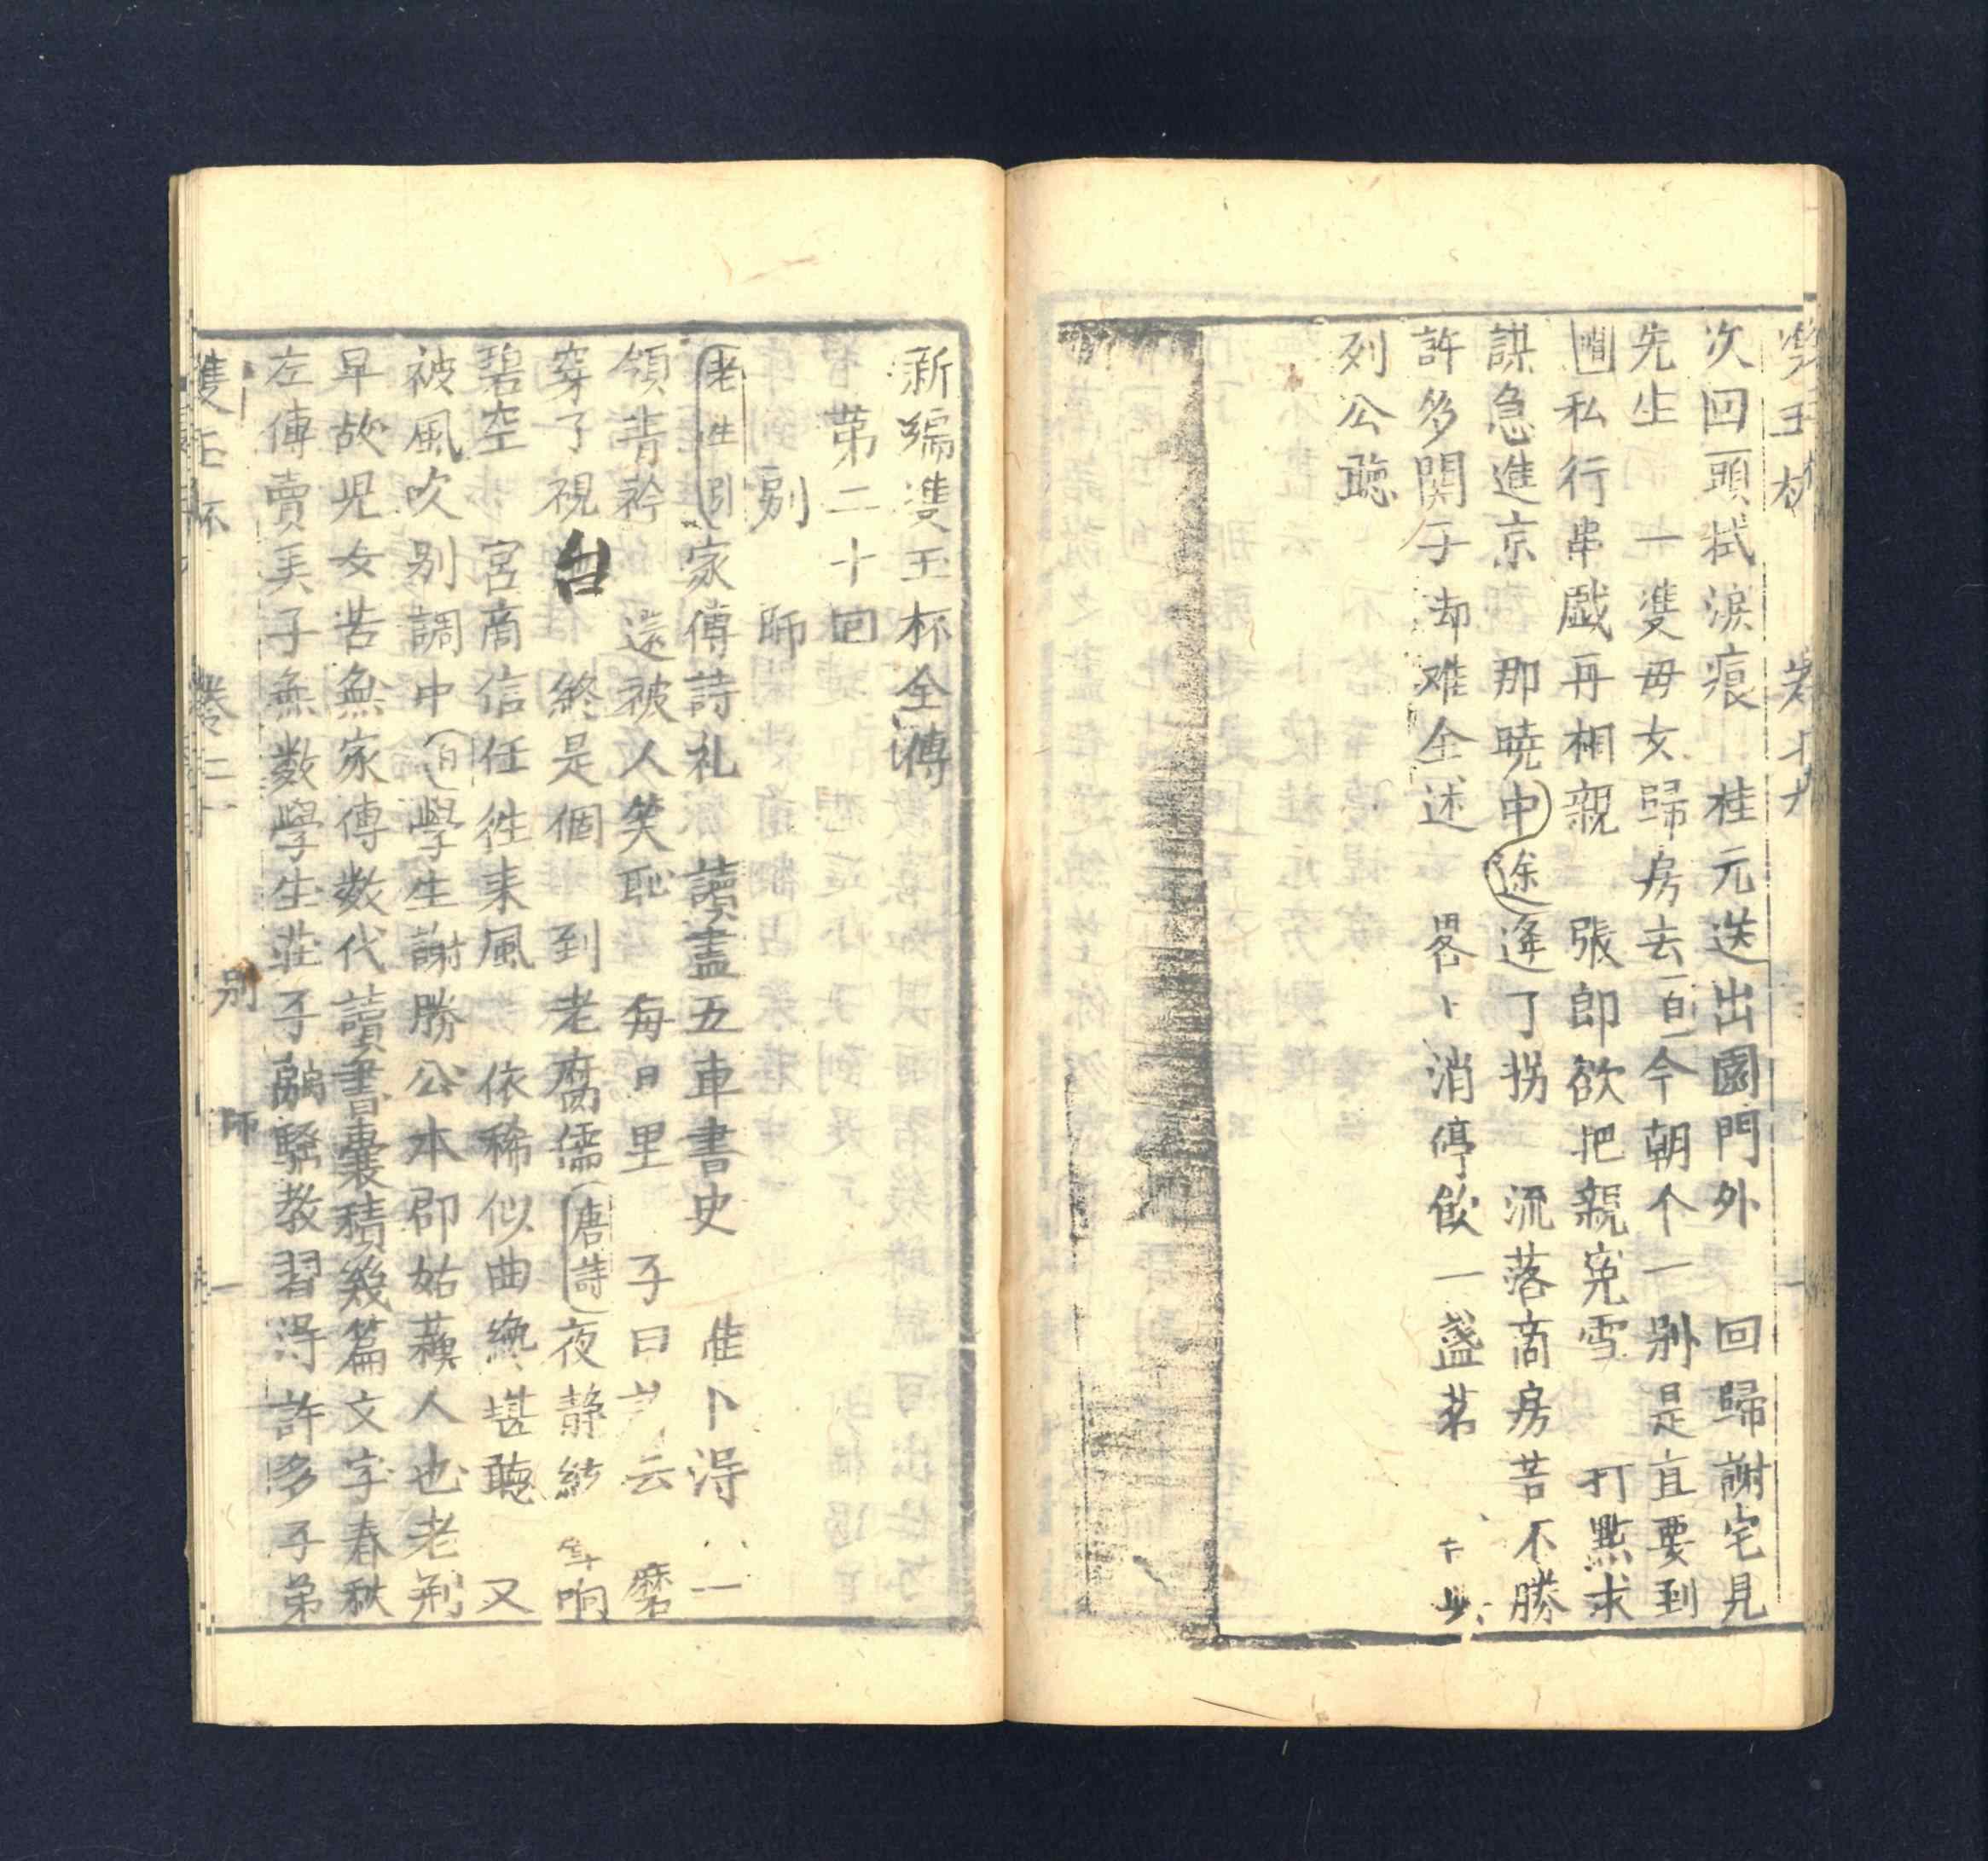 次回頭拭淚痕 桂元送出園門外 回歸謝宅見
先生 一雙母女歸房去 白 今朝个一别是直要到
私行串戯再相親 張郎欲把親寃雪 打點求
謀急進京 那曉中途逢了拐 流落商房苦不勝
許多関子却难全述 畧卜消停飲一盞茗
列公聽
新編雙玉杯全傳
第二十回
别 師
老生引 家傳詩礼 讀盡五車書史 隹卜淂 一
領青衿 遠被人笑恥 每日里 子曰 云 磨
穿了硯台 終是個 到老腐儒 唐詩 夜靜 响
碧空 宮商信任徃来風 依稀似曲纔堪聽 又
被風吹别調中 白 學生謝勝公本郡姑蘓人也老荆
早故児女苦無家傳数代讀書囊積幾篇文字春秋
左傳賣弄子無數學生莊子離騷教習淂許多子弟
雙玉杯 卷二十 别 師 一